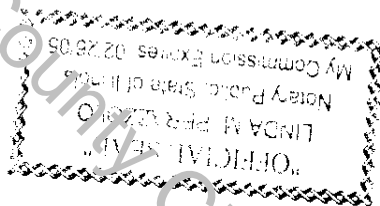 "OFFICIAL SEAL"
LINDA M.
Notary Public, State of Illinois
My Commission Expires 02/26/05
County